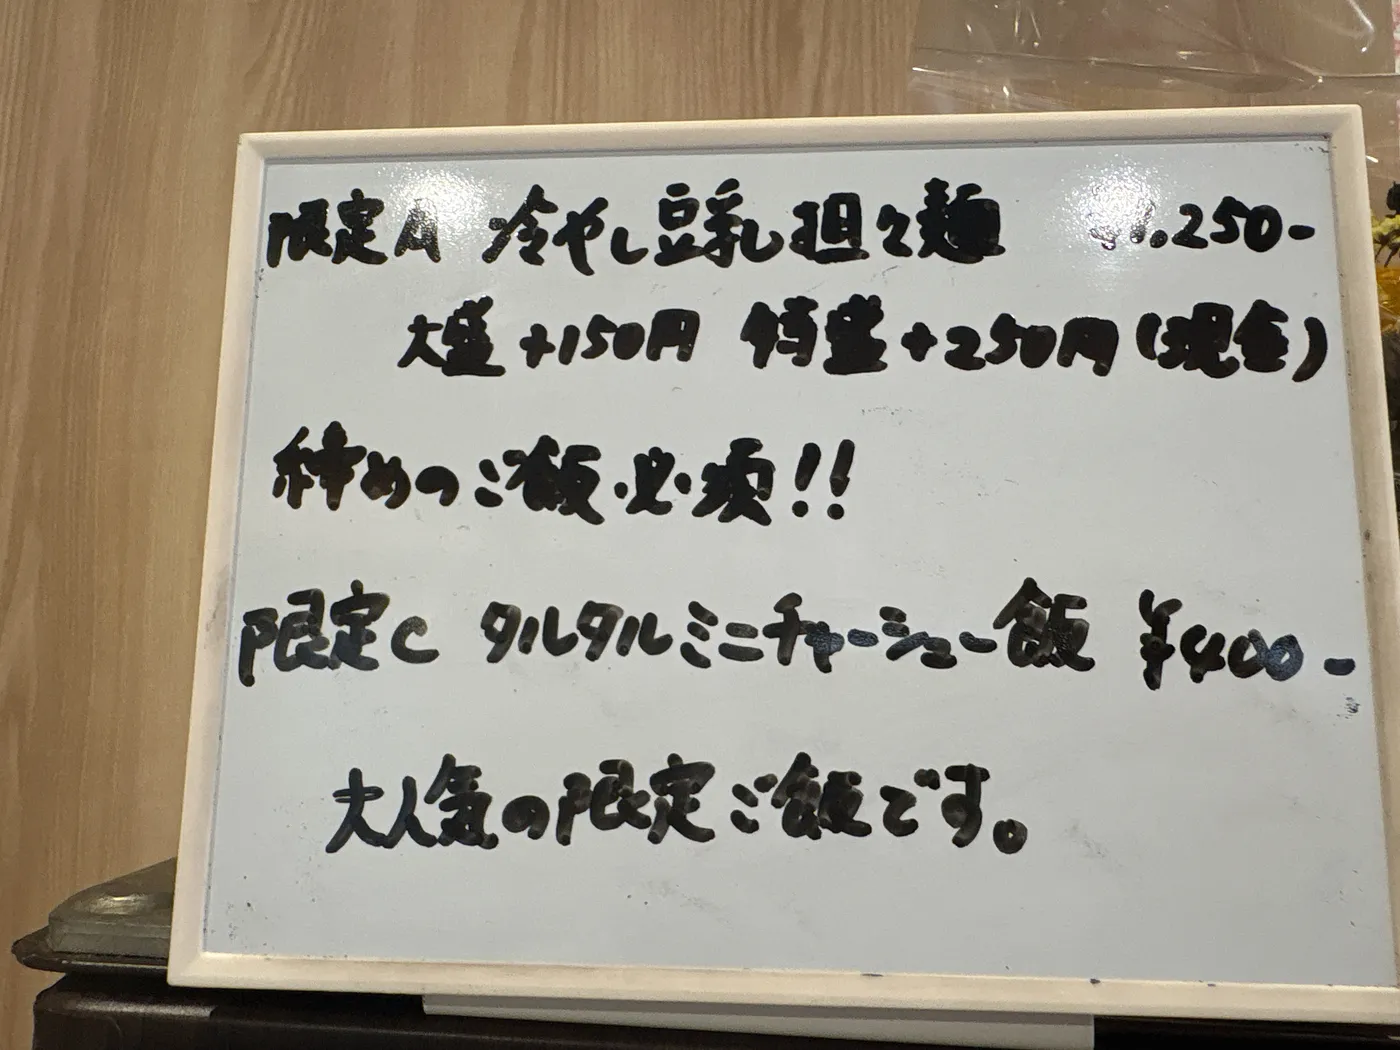 限定A 冷やし豆乳担々麺 ¥1.250-
大盛+150円 特盛+250円(現金)
締めのご飯必須!!
限定C タルタルミニチャーシュー飯 ¥400-
大人気の限定ご飯です。